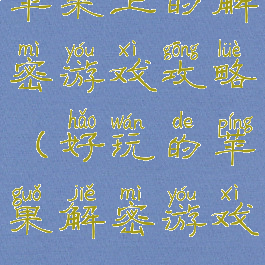 苹果上的解
mì yóu xì gōng lüè
密游戏攻略
hǎo wán de píng
(好玩的苹
guǒ jiě mì yóu xì
果解密游戏